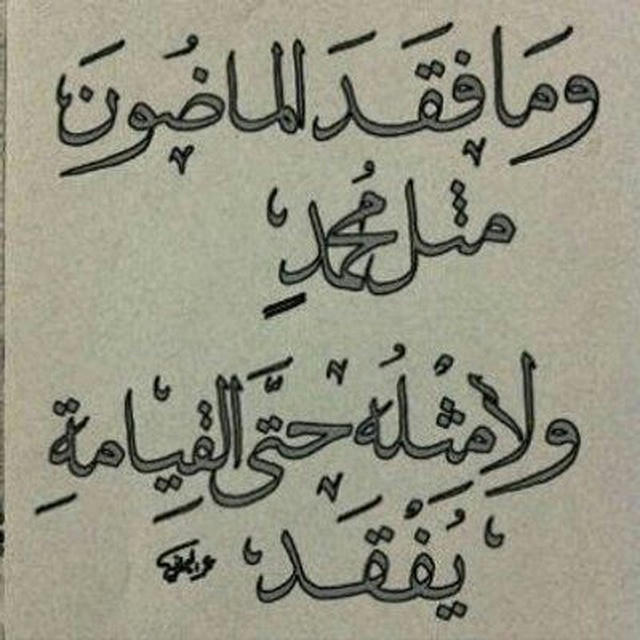 وما فقَدَ الماضُونَ
مثل مُحمدٍ
ولا مِثْلُه حتَّى القِيامةِ
يُفْقَد